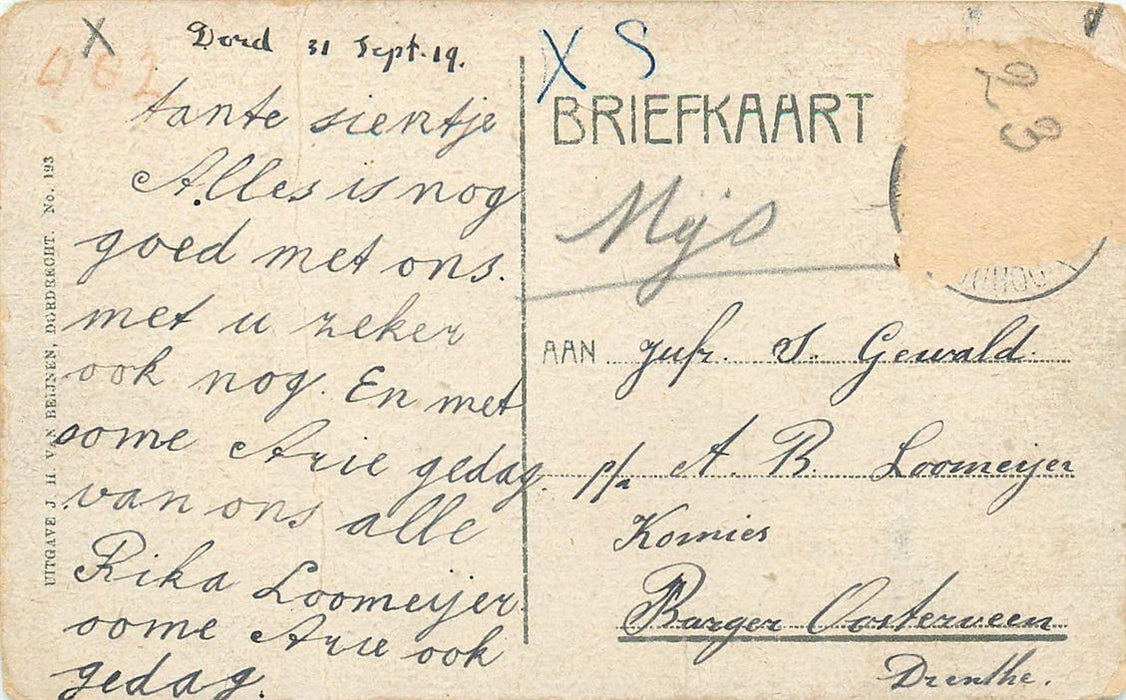 X
462
Dord 31 Sept. 19.
tante sientje
Alles is nog
goed met ons.
met u zeker
ook nog. En met
oome Arie gedag.
van ons alle
Rika Loomeijer
oome Arie ook
gedag.
UITGAVE J. H. VAN BEIJNEN, DORDRECHT. No. 193
X S
BRIEFKAART
23
AAN Jufr. S. Gewald.
p/a A. B. Loomeijer
Komies
Barger Oosterveen
Drenthe.